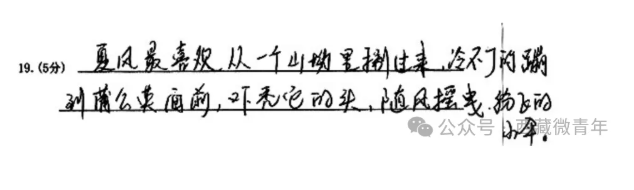 19.(5分) 夏风最喜欢从一个山坳里捌过来,冷不丁的蹦
到蒲公英面前,吓秃它的头,随风摇曳.物飞的
小伞.
公众号·西藏微青年